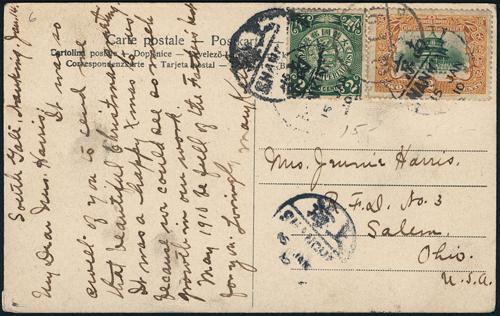 Carte postale — Postkarte
Cartolina postale — Dopisnice — Levelező-lap
Correspondenzkarte — Tarjeta postal —
South Gate, Nanking, Jan. 4.
My Dear Mrs. Harris,
It was so
sweet of you to send
that beautiful Christmas
It was a happy Xmas too,
because we could see so much
growth in our work.
May 1910 be full of the Father's best
for you. Lovingly, Mary
2
CENTS
SHANGHAI
15
Mrs. Jennie Harris,
R. F. d. No. 3
Salem,
Ohio.
U.S.A.